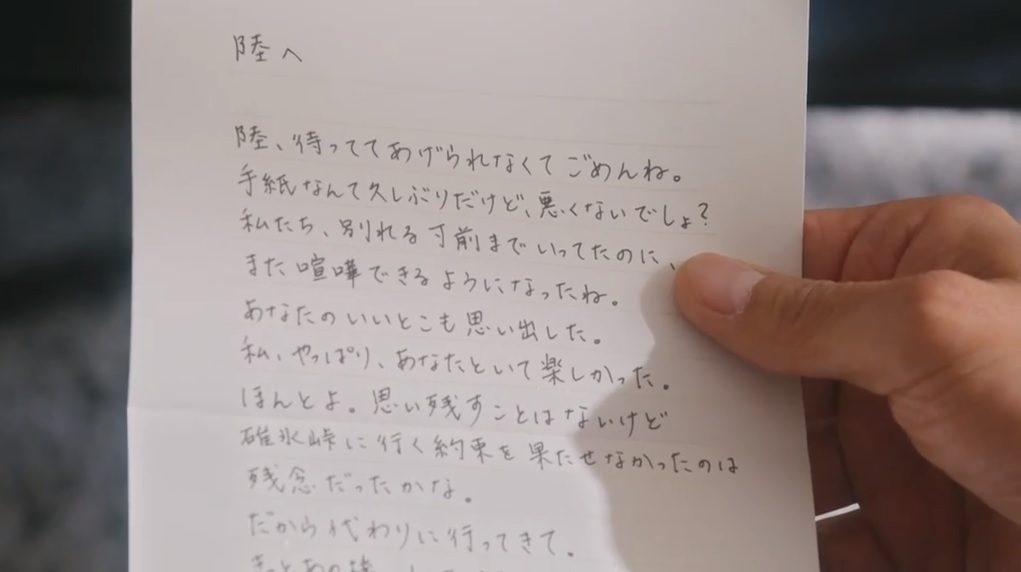 陸へ
陸、待っててあげられなくてごめんね。
手紙なんて久しぶりだけど、悪くないでしょ?
私たち、別れる寸前までいってたのに、
また喧嘩できるようになったね。
あなたのいいとこも思い出した。
私、やっぱり、あなたといて楽しかった。
ほんとよ。思い残すことはないけど
碓氷峠に行く約束を果たせなかったのは
残念だったかな。
だから代わりに行ってきて。
きっとあの